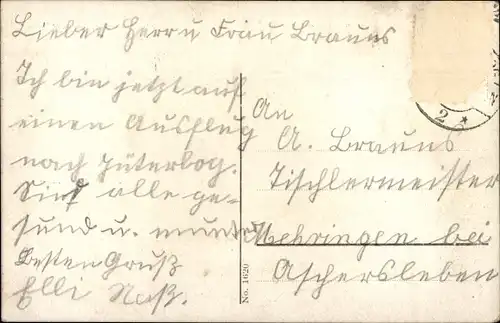 Lieber Herr u Frau Brauns
Ich bin jetzt auf
einen Ausflug
nach Jüterbog.
Sind alle ge-
sund u. munter
Besten Gruß
Elli Naß.
An
A. Brauns
Tischlermeister
Mehringen bei
Aschersleben
No. 1620
2 *